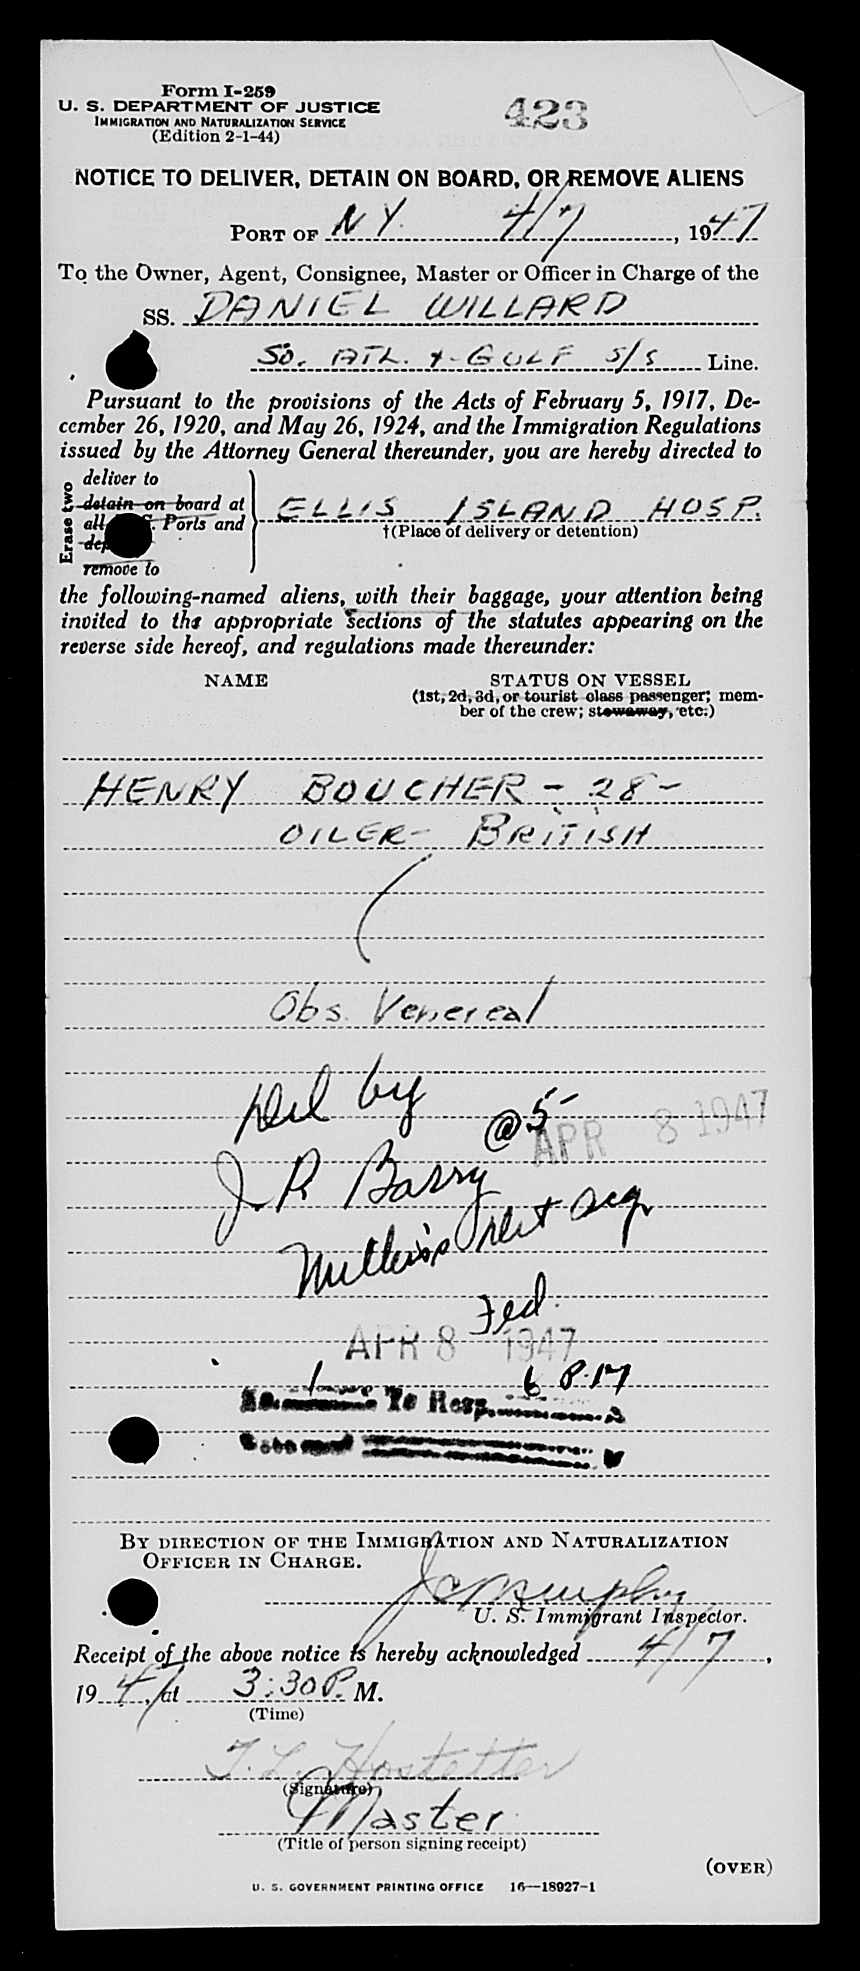 Form I-259
U. S. DEPARTMENT OF JUSTICE
IMMIGRATION AND NATURALIZATION SERVICE
(Edition 2-1-44)
423
NOTICE TO DELIVER, DETAIN ON BOARD, OR REMOVE ALIENS
PORT OF NY 4/7, 1947
To the Owner, Agent, Consignee, Master or Officer in Charge of the
SS. DANIEL WILLARD
SO. ATL. & GULF S/S Line.
Pursuant to the provisions of the Acts of February 5, 1917, De-
cember 26, 1920, and May 26, 1924, and the Immigration Regulations
issued by the Attorney General thereunder, you are hereby directed to
Erase two
deliver to
detain on board at
all Ports and
remove to
ELLIS ISLAND HOSP.
†(Place of delivery or detention)
the following-named aliens, with their baggage, your attention being
invited to the appropriate sections of the statutes appearing on the
reverse side hereof, and regulations made thereunder:
NAME
STATUS ON VESSEL
(1st, 2d, 3d, or tourist class passenger; mem-
ber of the crew; stowaway, etc.)
HENRY BOUCHER - 28 -
OILER - BRITISH
Obs. Venereal
Del by
@ 5-
APR 8 1947
J. R. Barry
Fed.
APR 8 1947
1 6 P. 17
To Hosp.
BY DIRECTION OF THE IMMIGRATION AND NATURALIZATION
OFFICER IN CHARGE.
J C Murphy
U. S. Immigrant Inspector.
Receipt of the above notice is hereby acknowledged 4/7,
1947, at 3:30 P. M.
(Time)
T. L. Hostetter
(Signature)
Master
(Title of person signing receipt)
(OVER)
U. S. GOVERNMENT PRINTING OFFICE 16—18927-1